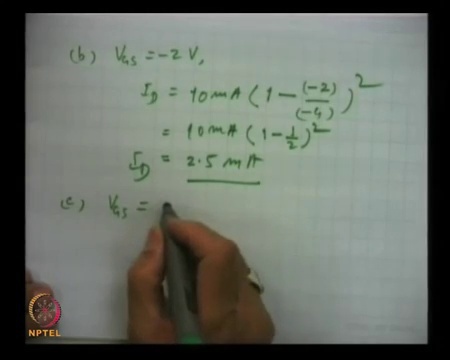 (b) V_GS = -2 V,
I_D = 10 mA (1 - (-2)/(-4))^2
= 10 mA (1 - 1/2)^2
I_D = 2.5 mA
(c) V_GS =
NPTEL